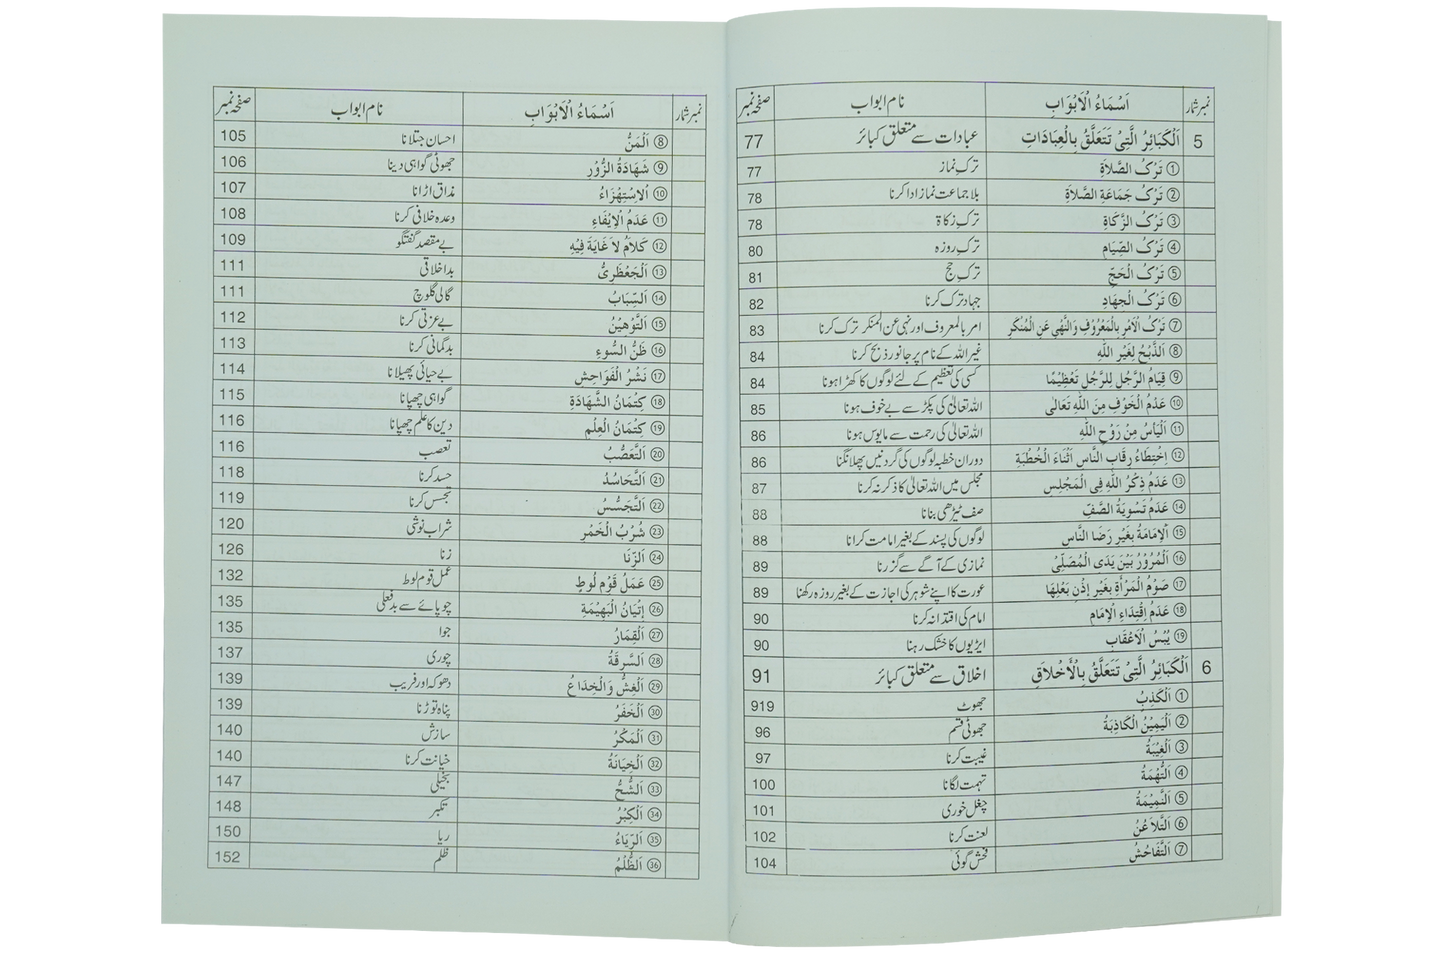 نمبر شمار اَسْمَاءُ الْاَبْوَابِ نام ابواب صفحہ نمبر
5 اَلْكَبَائِرُ الَّتِیْ تَتَعَلَّقُ بِالْعِبَادَاتِ عبادات سے متعلق کبائر 77
① تَرْکُ الصَّلاَةِ ترکِ نماز 77
② تَرْکُ جَمَاعَةِ الصَّلاَةِ بلا جماعت نماز ادا کرنا 78
③ تَرْکُ الزَّكَاةِ ترکِ زکاۃ 78
④ تَرْکُ الصِّيَامِ ترکِ روزہ 80
⑤ تَرْکُ الْحَجِّ ترکِ حج 81
⑥ تَرْکُ الْجِهَادِ جہاد ترک کرنا 82
⑦ تَرْکُ الْاَمْرِ بِالْمَعْرُوْفِ وَالنَّهْىِ عَنِ الْمُنْكَرِ امر بالمعروف اور نہی عن المنکر ترک کرنا 83
⑧ اَلذَّبْحُ لِغَيْرِ اللّٰهِ غیر اللہ کے نام پر جانور ذبح کرنا 84
⑨ قِيَامُ الرَّجُلِ لِلرَّجُلِ تَعْظِيْمًا کسی کی تعظیم کے لئے لوگوں کا کھڑا ہونا 84
⑩ عَدَمُ الْخَوْفِ مِنَ اللّٰهِ تَعَالٰى اللہ تعالیٰ کی پکڑ سے بے خوف ہونا 85
⑪ اَلْيَأْسُ مِنْ رَوْحِ اللّٰهِ اللہ تعالیٰ کی رحمت سے مایوس ہونا 86
⑫ اِخْتِطَاءُ رِقَابِ النَّاسِ اَثْنَاءَ الْخُطْبَةِ دوران خطبہ لوگوں کی گردنیں پھلانگنا 86
⑬ عَدَمُ ذِكْرِ اللّٰهِ فِى الْمَجْلِسِ مجلس میں اللہ تعالیٰ کا ذکر نہ کرنا 87
⑭ عَدَمُ تَسْوِيَةُ الصَّفِّ صف ٹیڑھی بنانا 88
⑮ اَلْاِمَامَةُ بِغَيْرِ رَضَا النَّاسِ لوگوں کی پسند کے بغیر امامت کرانا 88
⑯ اَلْمُرُوْرُ بَيْنَ يَدَىِ الْمُصَلِّىْ نمازی کے آگے سے گزرنا 89
⑰ صَوْمُ الْمَرْأَةِ بِغَيْرِ اِذْنِ بَعْلِهَا عورت کا اپنے شوہر کی اجازت کے بغیر روزہ رکھنا 89
⑱ عَدَمُ اِقْتِدَاءِ الْاِمَامِ امام کی اقتدا نہ کرنا 90
⑲ يُبْسُ الْاَعْقَابِ ایڑیوں کا خشک رہنا 90
6 اَلْكَبَائِرُ الَّتِیْ تَتَعَلَّقُ بِالْاَخْلاَقِ اخلاق سے متعلق کبائر 91
① اَلْكَذِبُ جھوٹ 919
② اَلْيَمِيْنُ الْكَاذِبَةُ جھوٹی قسم 96
③ اَلْغِيْبَةُ غیبت کرنا 97
④ اَلتُّهْمَةُ تہمت لگانا 100
⑤ اَلنَّمِيْمَةُ چغل خوری 101
⑥ اَلتَّلاَعُنُ لعنت کرنا 102
⑦ اَلتَّفَاحُشُ فحش گوئی 104
نمبر شمار اَسْمَاءُ الْاَبْوَابِ نام ابواب صفحہ نمبر
⑧ اَلْمَنُّ احسان جتلانا 105
⑨ شَهَادَةُ الزُّوْرِ جھوٹی گواہی دینا 106
⑩ اَلْاِسْتِهْزَاءُ مذاق اڑانا 107
⑪ عَدَمُ الْاِيْفَاءِ وعدہ خلافی کرنا 108
⑫ كَلاَمُ لاَ غَايَةَ فِيْهِ بے مقصد گفتگو 109
⑬ اَلْجَعْظَرِىُّ بد اخلاقی 111
⑭ اَلسِّبَابُ گالی گلوچ 111
⑮ اَلتَّوْهِيْنُ بے عزتی کرنا 112
⑯ ظَنُّ السُّوْءِ بدگمانی کرنا 113
⑰ نَشْرُ الْفَوَاحِشِ بے حیائی پھیلانا 114
⑱ كِتْمَانُ الشَّهَادَةِ گواہی چھپانا 115
⑲ كِتْمَانُ الْعِلْمِ دین کا علم چھپانا 116
⑳ اَلتَّعَصُّبُ تعصب 116
㉑ اَلتَّحَاسُدُ حسد کرنا 118
㉒ اَلتَّجَسُّسُ تجسس کرنا 119
㉓ شُرْبُ الْخَمْرِ شراب نوشی 120
㉔ اَلزِّنَا زنا 126
㉕ عَمَلُ قَوْمِ لُوطٍ عمل قوم لوط 132
㉖ اِتْيَانُ الْبَهِيْمَةِ چوپائے سے بد فعلی 135
㉗ اَلْقِمَارُ جوا 135
㉘ اَلسَّرِقَةُ چوری 137
㉙ اَلْغِشُّ وَالْخِدَاعُ دھوکہ اور فریب 139
㉚ اَلْخَفَرُ پناہ توڑنا 139
㉛ اَلْمَكْرُ سازش 140
㉜ اَلْخِيَانَةُ خیانت کرنا 140
㉝ اَلشُّحُّ بخیلی 147
㉞ اَلْكِبْرُ تکبر 148
㉟ اَلرِّيَاءُ ریا 150
㊱ اَلظُّلْمُ ظلم 152